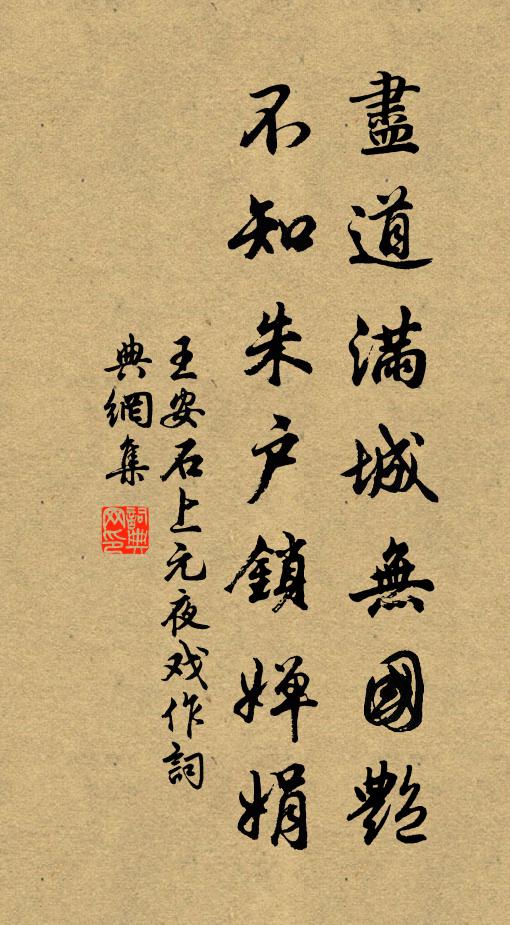 盡道滿城無國艷
不知朱户鎖嬋娟
王安石上元夜戏作詞
典網集
詞典
网印